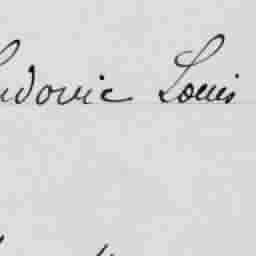 Ludovic Louis